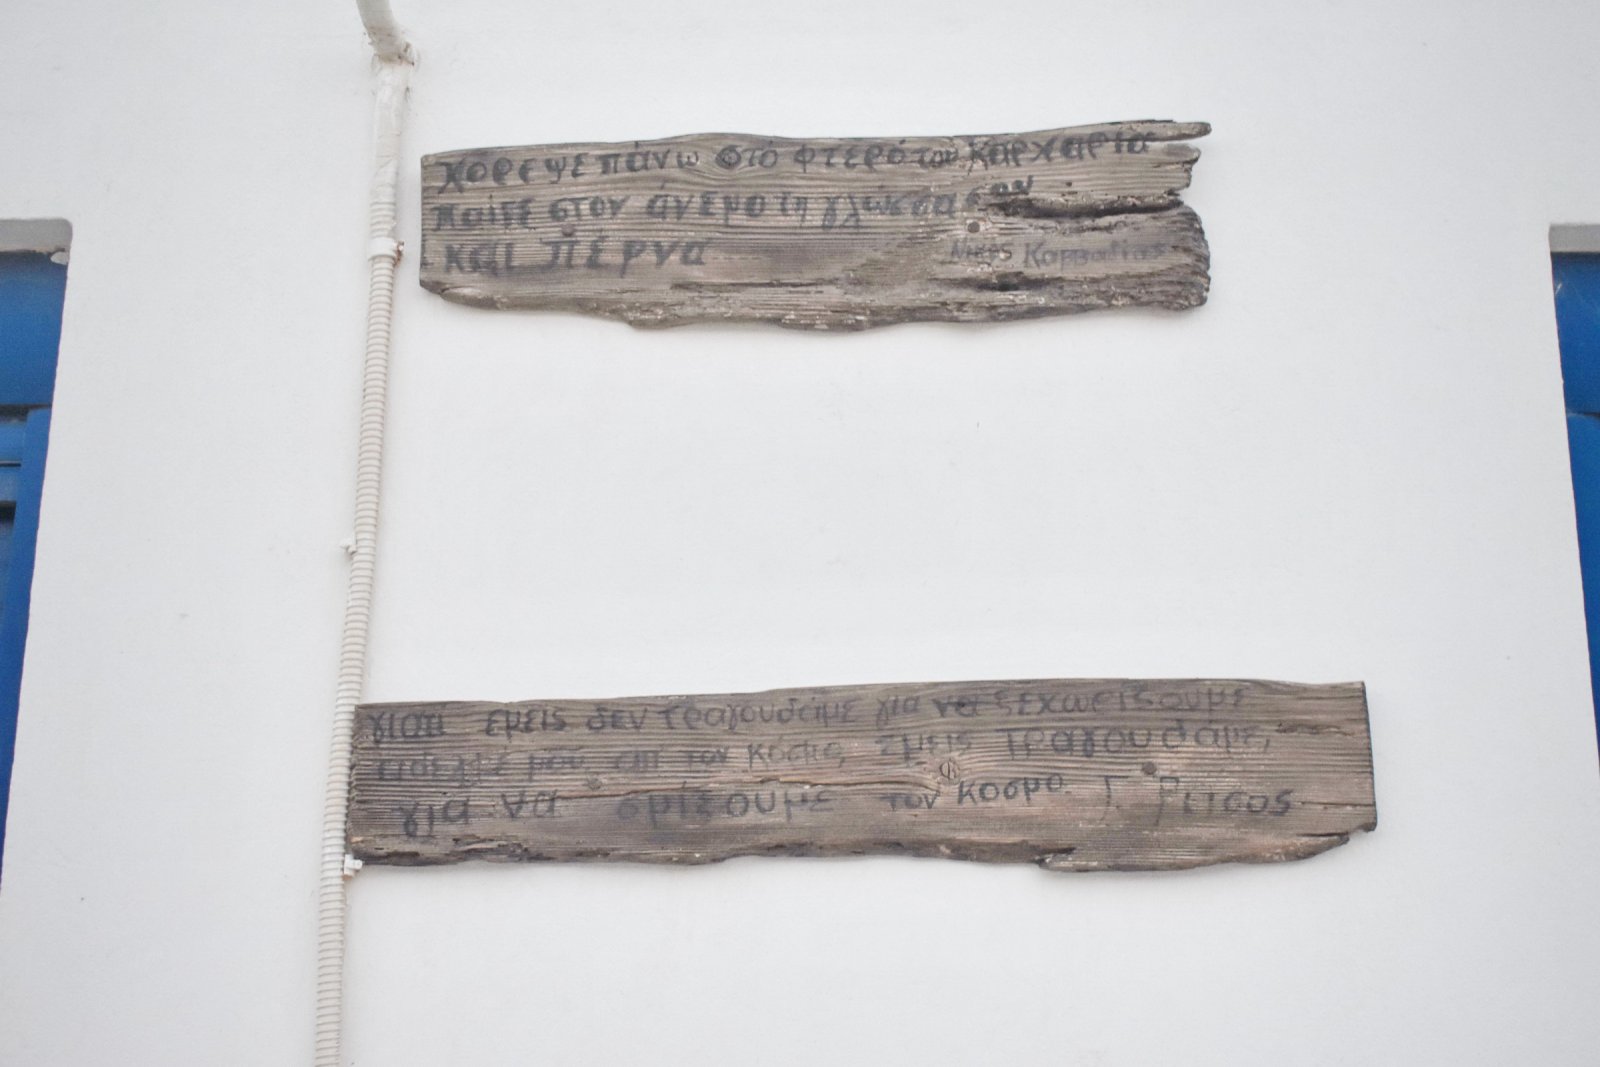 χόρεψε πάνω στό φτερό του Καρχαρία
παίξε στον άνεμο τη γλώσσα σου
και πέρνα
Νίκος Καββαδίας
γιατί εμείς δεν τραγουδάμε για να ξεχωρίσουμε
μου απ' τον κόσμο, εμείς τραγουδάμε,
για να σμίξουμε τον κόσμο. Γ. Ρίτσος